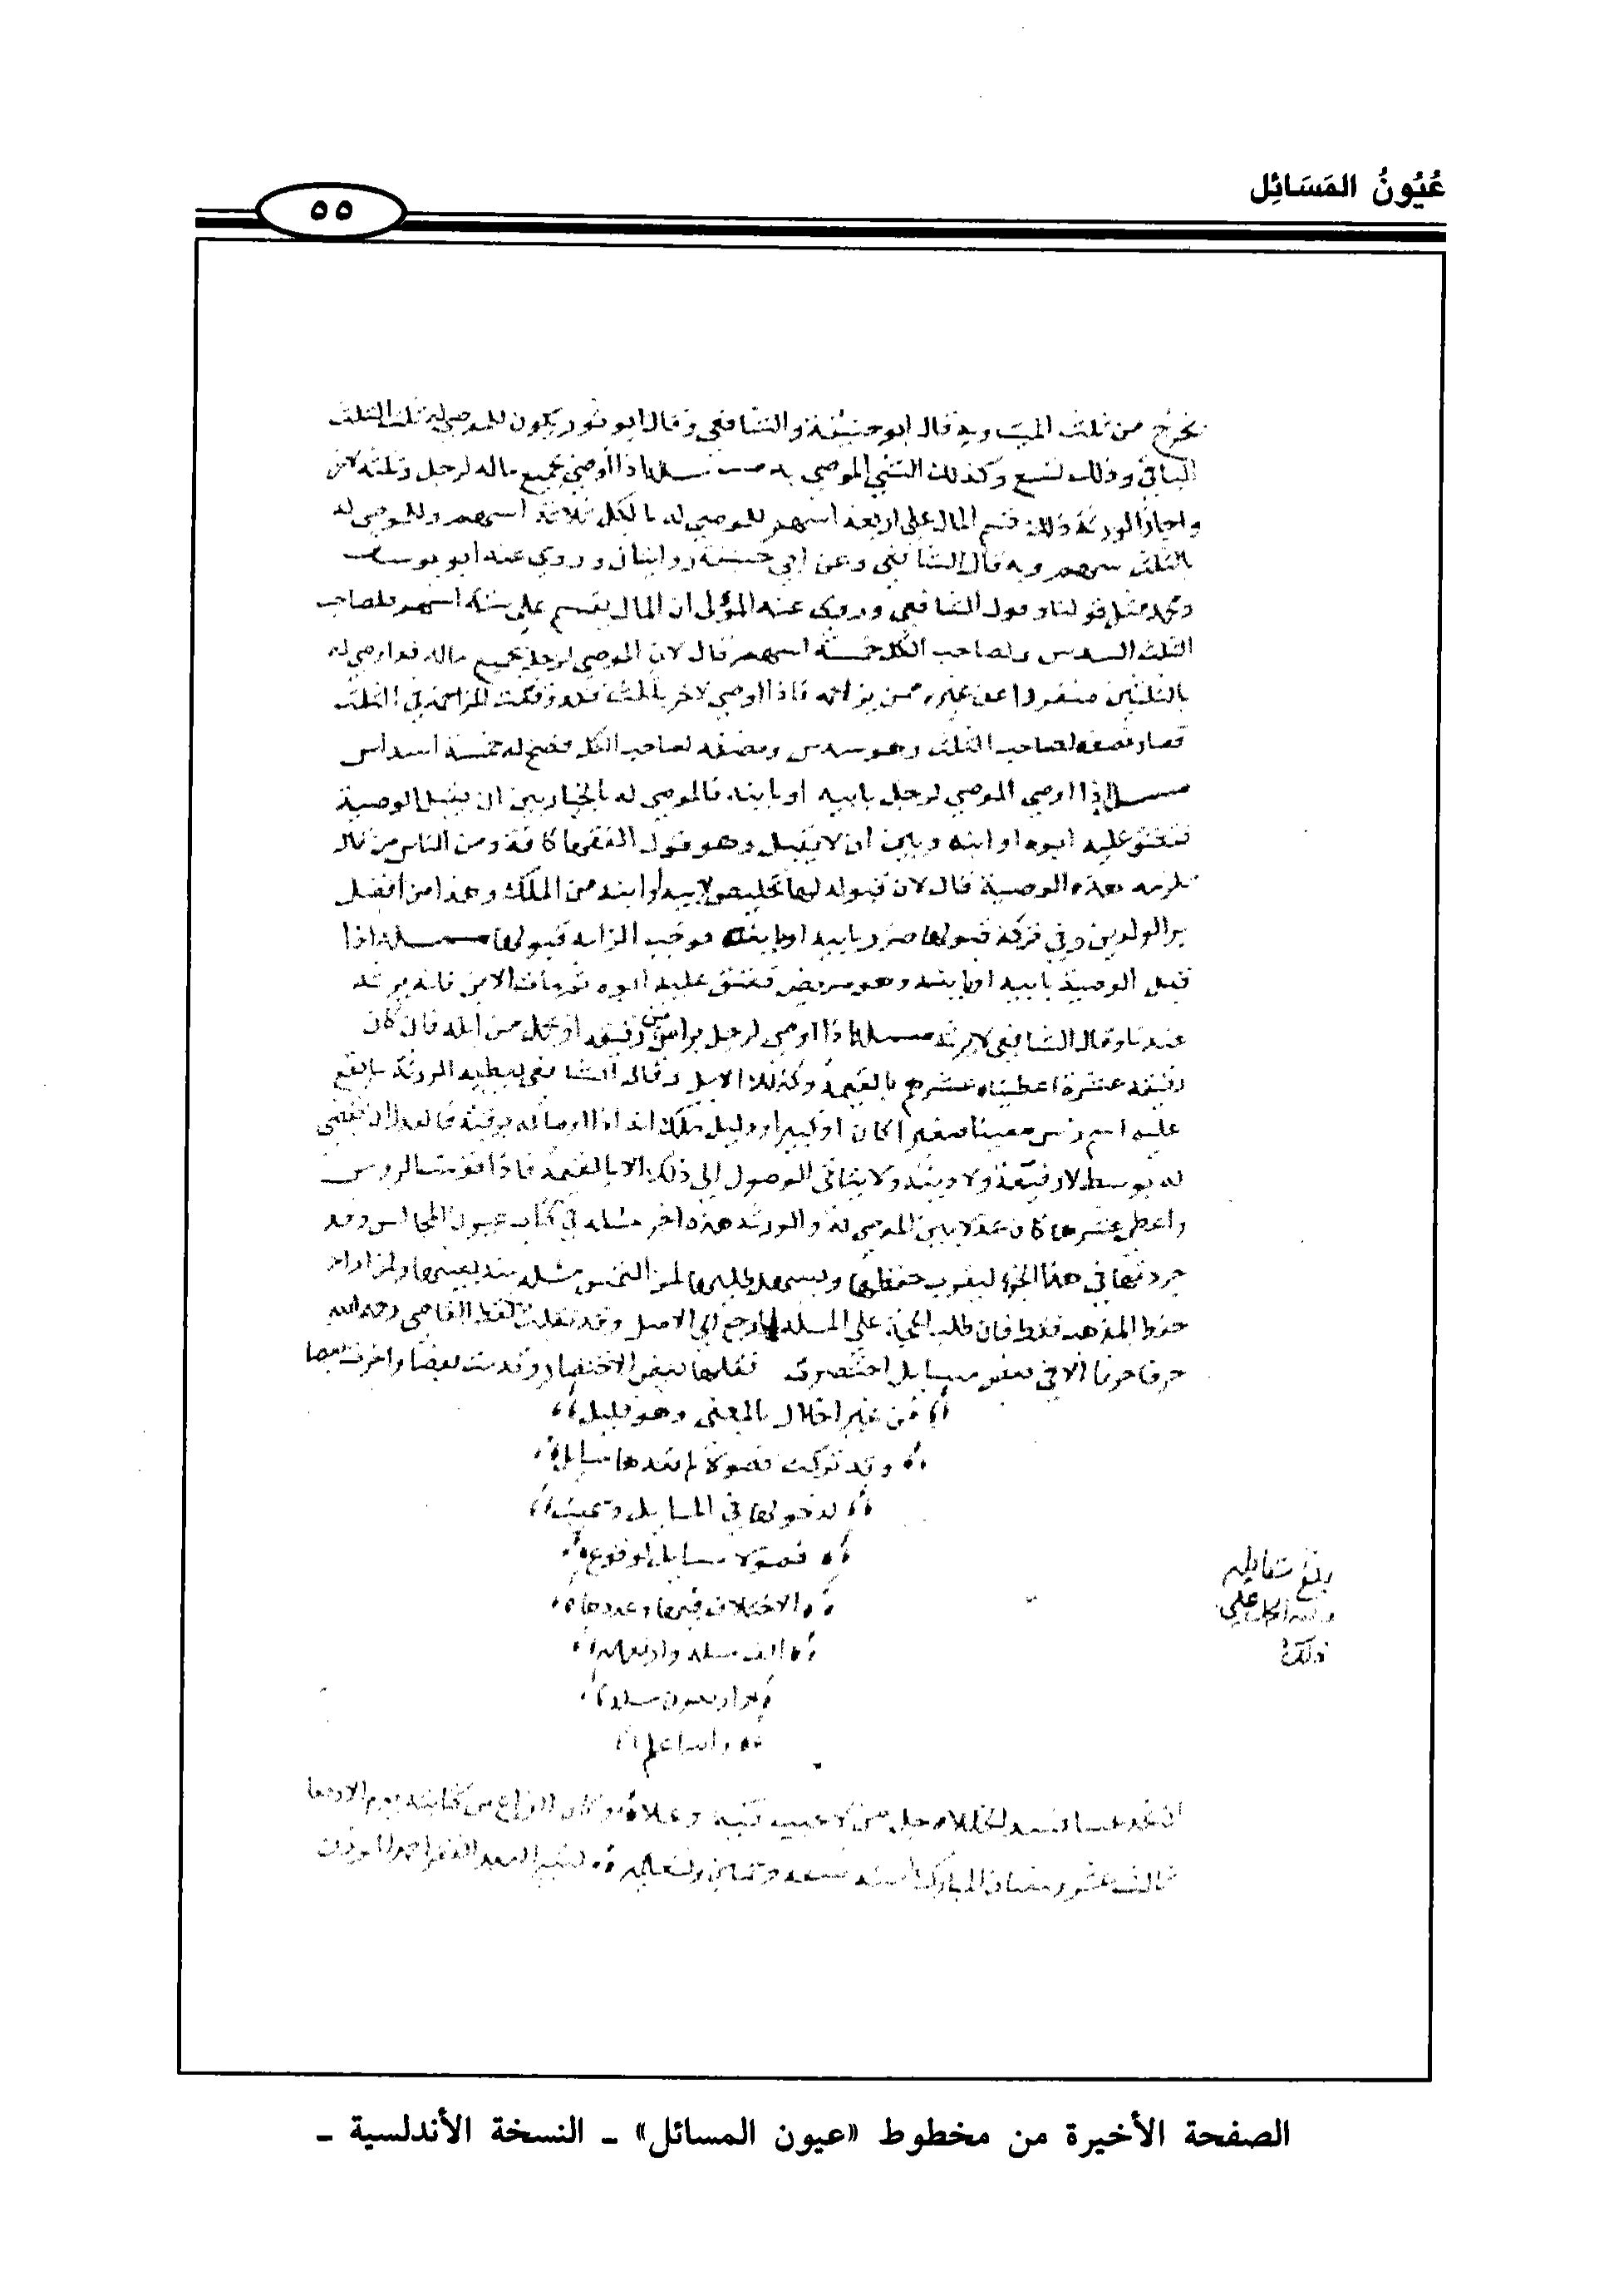 عُيُونُ المَسَائِل
٥٥
يخرج من ثلث الميت وبه قال ابو حنيفة والشافعي وقال ابو ثور يكون للموصى له ثلث الثلث
الباقي وذلك تسع وكذلك الشي الموصى به مسلة اذا اوصى بجميع ماله لرجل وثلثه لاخر
واجاز الورثة ذلك قسم المال على اربعة اسهم للموصى له بالكل ثلاثة اسهم وللموصى له
بالثلث سهم وبه قال الشافعي وعن ابي حنيفة روايتان وروي عنه ابو يوسف
ومحمد مثل قولنا وقول الشافعي وروي عنه اللؤلؤي ان المال يقسم على ستة اسهم لصاحب
الثلث السدس ولصاحب الكل خمسة اسهم قال لان الموصي لرجل بجميع ماله قد اوصى له
بالثلثين منفردا عن غيره ممن يزاحمه فاذا اوصى لاخر بالثلث فقد وقعت المزاحمة في الثلث
فصار نصفه لصاحب الثلث وهو سدس ونصفه لصاحب الكل فصح له خمسة اسداس
مسلة اذا اوصى الموصي لرجل بابيه او بابنه فالموصى له بالخيار بين ان يقبل الوصية
فيعتق عليه ابوه او ابنه وبين ان لا يقبل وهو قول الفقها كافة ومن الناس من قال
يلزمه هذه الوصية قال لان قبوله لها تخليص لابيه او ابنه من الملك وهذا من افضل
بر الوالدين وفي تركه قبولها ضرر بابيه او بابنه فوجب الزامه قبولها مسلة اذا
قبل الوصية بابيه او بابنه وهو مريض فعتق عليه ابوه ثم مات الابن فانه يرثه
عندنا وقال الشافعي لا يرثه مسلة اذا اوصى لرجل براس من رقيقه او بجمل من ابله فان كان
رقيقه عشرة اعطيناه عشرهم بالقيمة وكذلك الابل وقال الشافعي يعطيه الورثة ما يقع
عليه اسم راس معيبا صغيرا كان او كبيرا ودليل ملك انه اذا اوصا له برقبة فالعدل ان تقضي
له بوسط لا رفيعة ولا دنيئه ولا يتاتى الوصول الى ذلك الا بالقيمة فاذا قومت الروس
واعطي عشرها كان عدلا بين الموصى له والورثه هذه اخر مسله في كتاب عيون المجالس وقد
جردتها في هذا الجزء ليقرب حفظها ويسهل طلبها لمن التمس مسله منه بعينها ولمن اراد
حفظ المذهب فقط فان طلب الحجة على المسلة رجع الى الاصل وقد نقلت لفظ القاضي رحمه الله
حرفا حرفا الا في بعض مسايل اختصرت نقلها لبعض الاختصار وقدمت بعضا واخرت بعضا
من غير اخلال بالمعنى وهو قليل
وقد تركت فصولا لم نعدها مسايل
لدخولها في المسايل وتممت
فصولا مسايل لوقوع
الاختلاف فيها وعددها
الف مسله واربعمايه
واربعون مسله
والله اعلم
بلغ مقابله
ولله الحمد على
ذلك
ثالث عشر رمضان المبارك سنة تسعه
الصفحة الأخيرة من مخطوط «عيون المسائل» - النسخة الأندلسية -